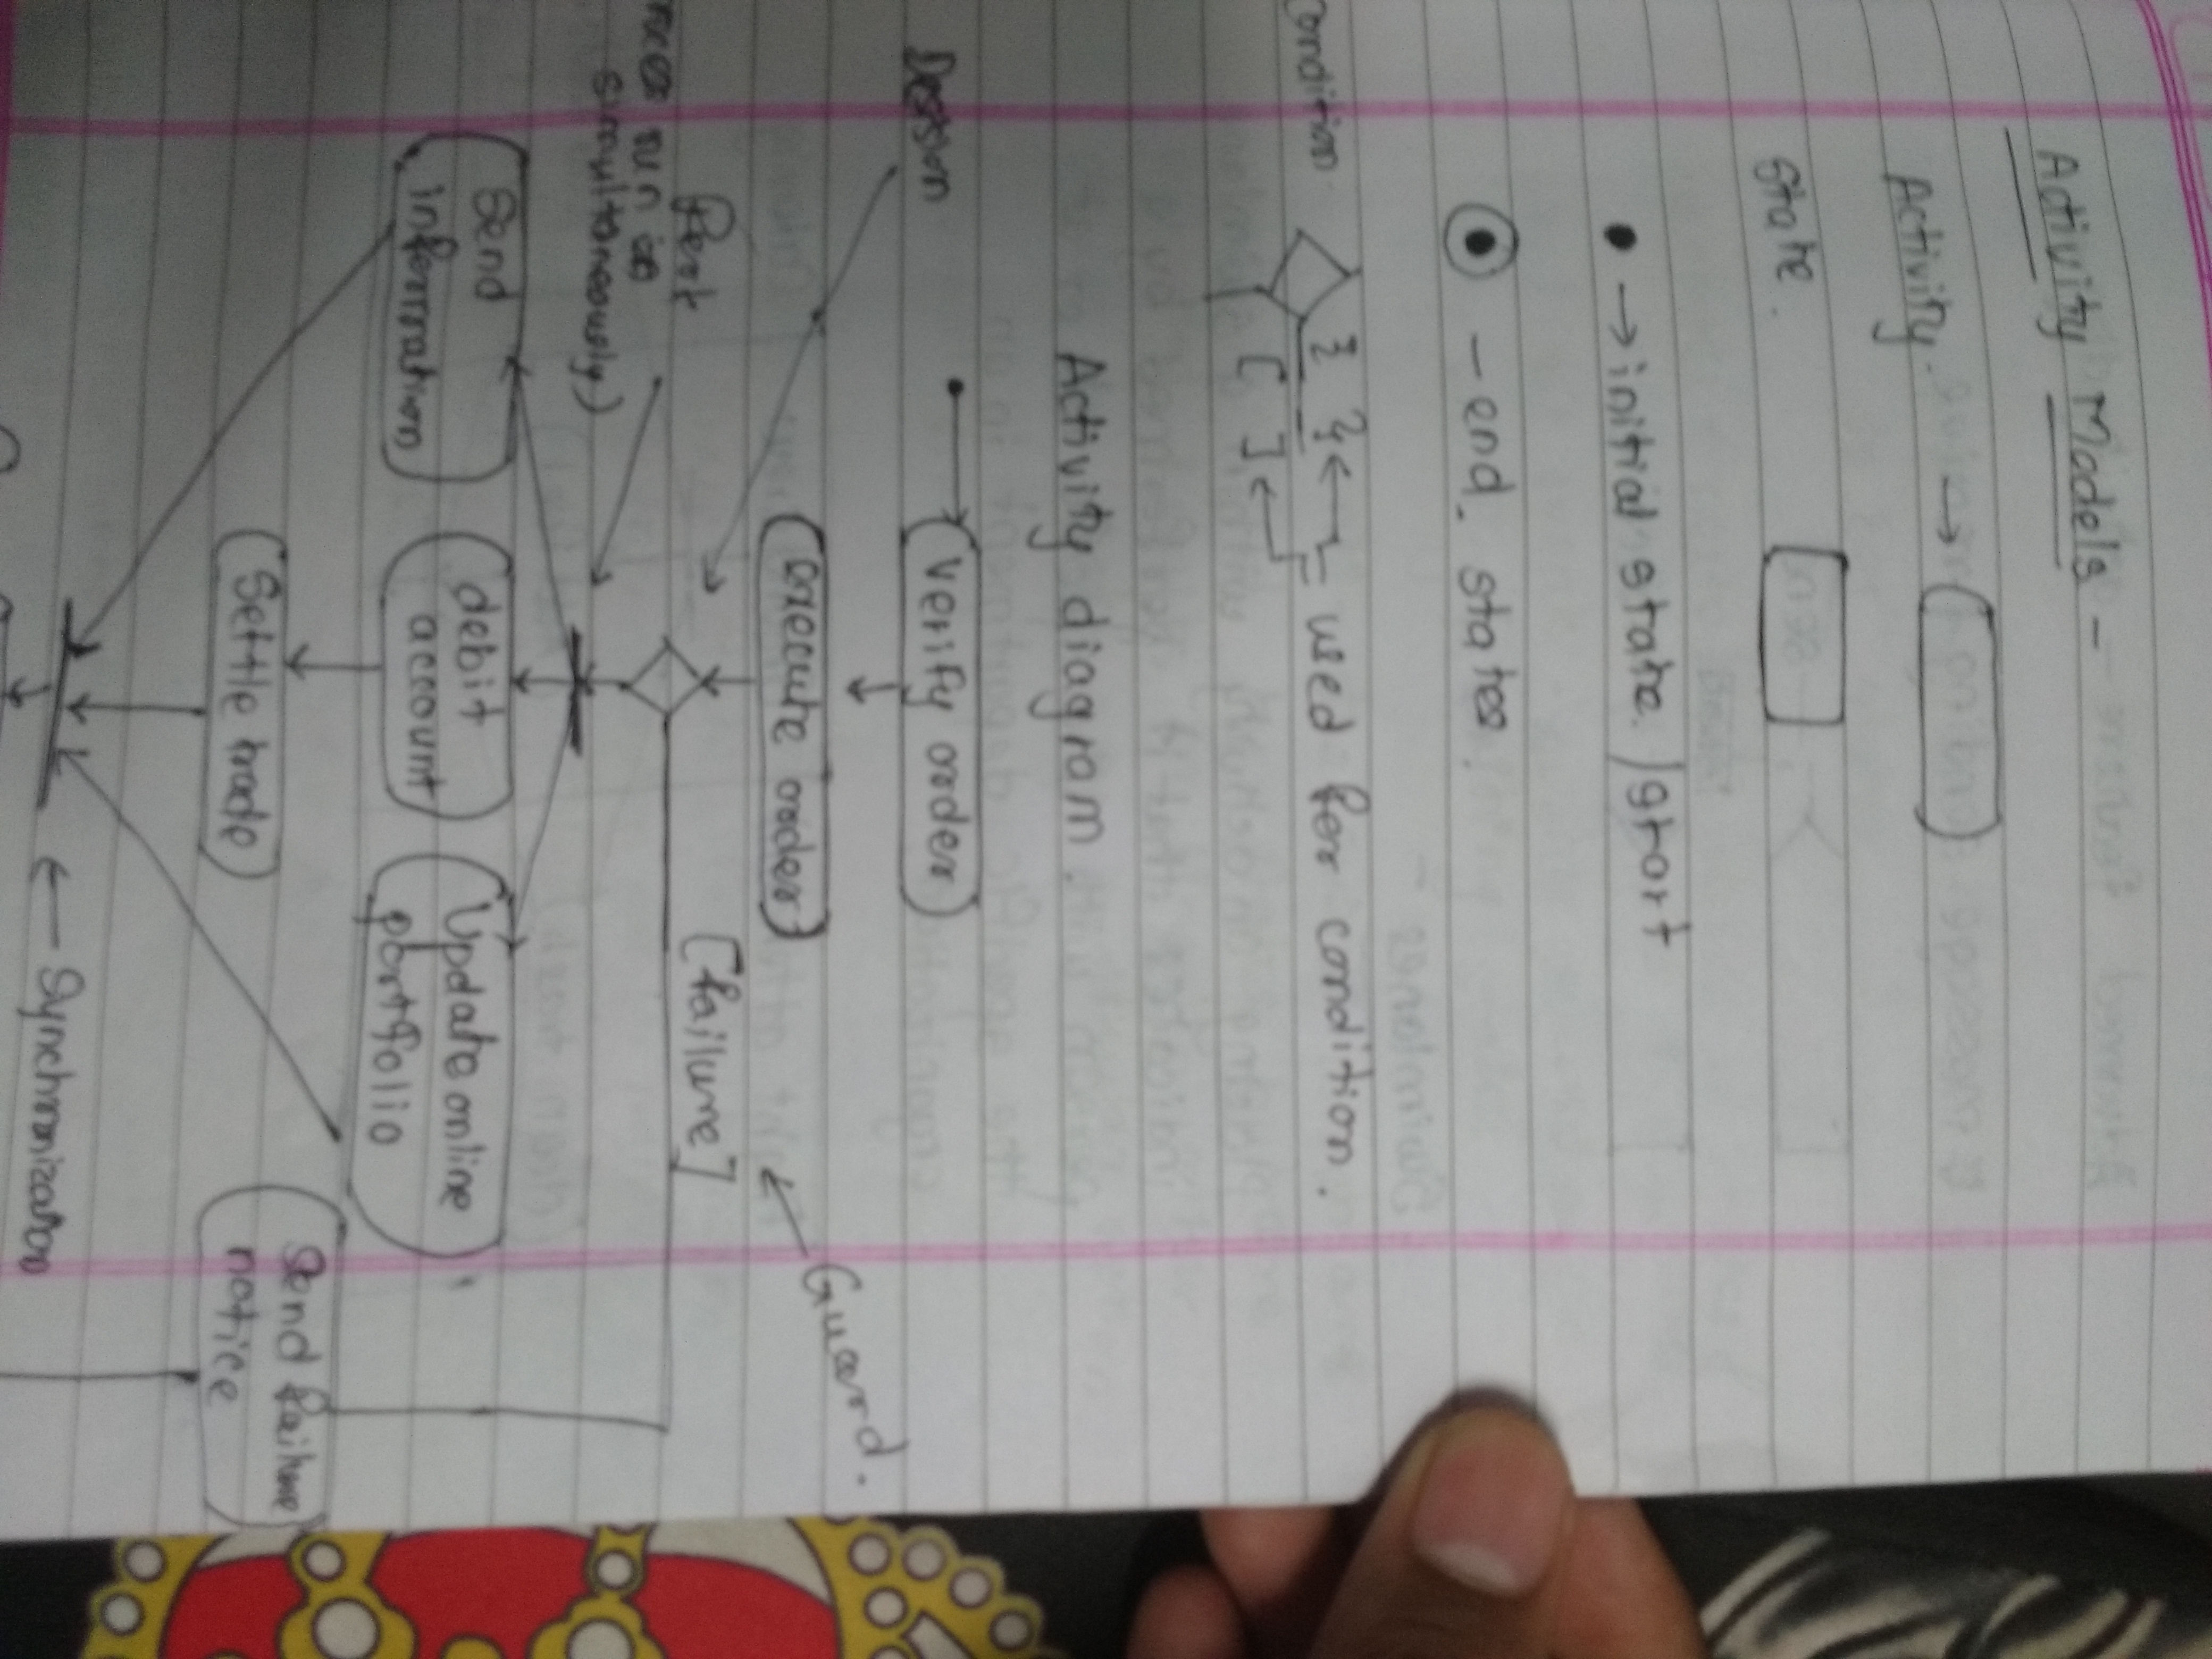 Activity Models -
Activity. →
State.
→ initial state. / start
- end. states.
Condition { } ← used for condition.
[ ] ←
Activity diagram.
Dession
verify order
Guard.
execute order
[failure]
Fork
run
simultaneously)
Send
information
debit
account
Update online
portfolio
Send failure
notice
Settle trade
← Synchronization